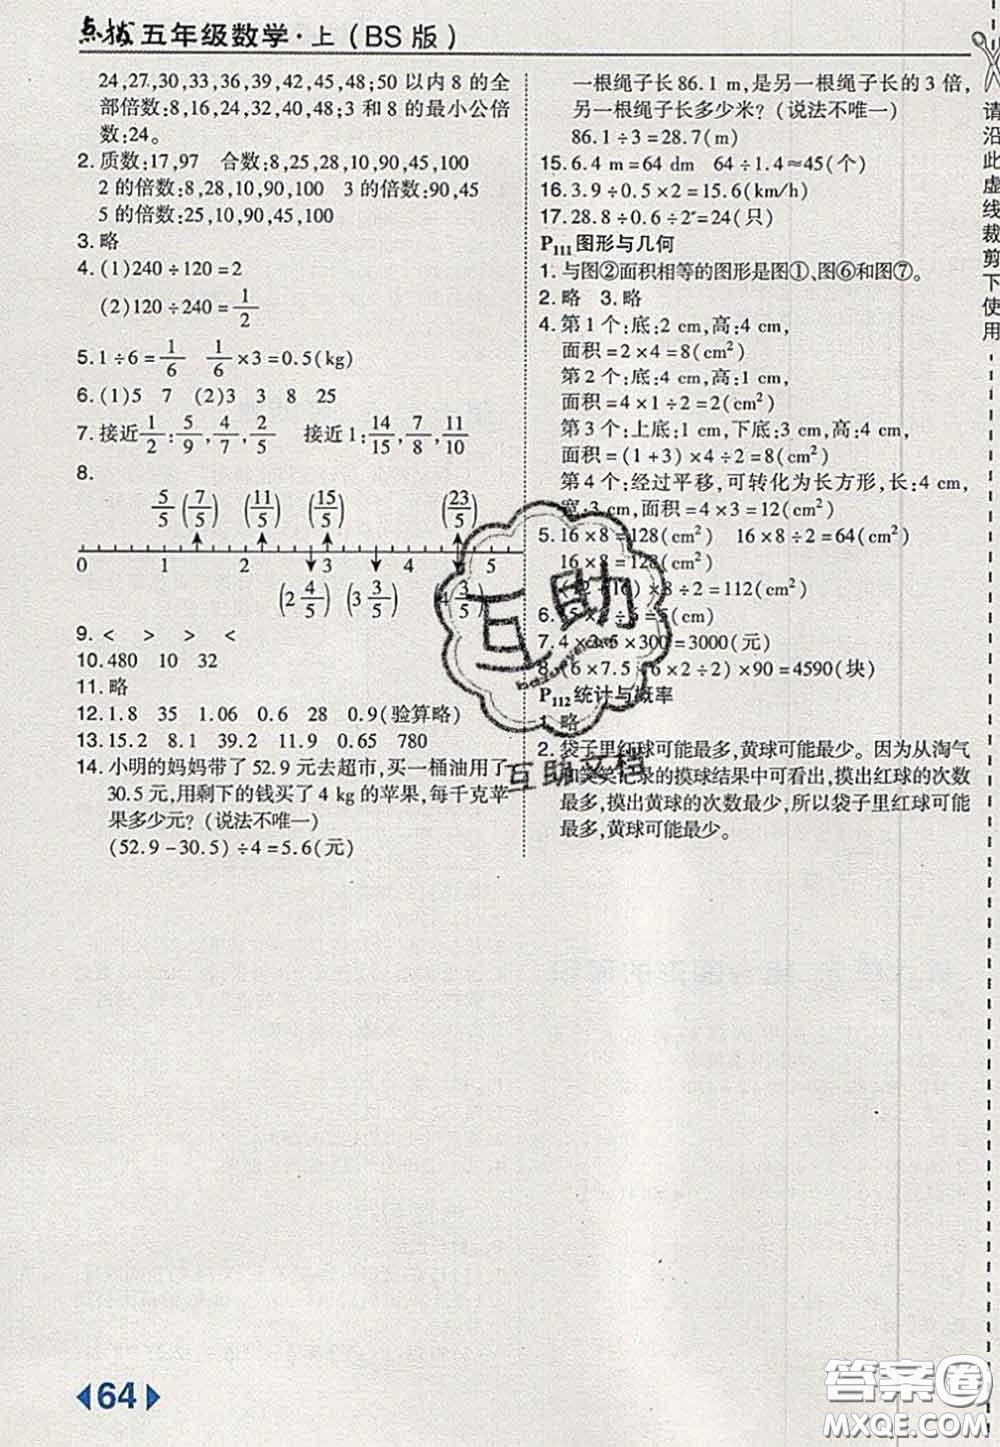 点拨 五年级数学·上(BS版)
24,27,30,33,36,39,42,45,48;50 以内 8 的全
部倍数:8,16,24,32,40,48;3 和 8 的最小公倍
数:24。
2. 质数:17,97 合数:8,25,28,10,90,45,100
2 的倍数:8,28,10,90,100 3 的倍数:90,45
5 的倍数:25,10,90,45,100
3. 略
4. (1)240÷120=2
(2)120÷240=1/2
5. 1÷6=1/6 1/6×3=0.5(kg)
6. (1)5 7 (2)3 3 8 25
7. 接近1/2:5/9,4/7,2/5 接近1:14/15,7/8,11/10
8.
5/5 (7/5) (11/5) (15/5) (23/5)
0 1 2 3 4 5
(2 4/5) (3 3/5) 4 3/5)
9. < > > <
10. 480 10 32
11. 略
12. 1.8 35 1.06 0.6 28 0.9(验算略)
13. 15.2 8.1 39.2 11.9 0.45 780
14. 小明的妈妈带了 52.9 元去超市,买一桶油用了
30.5 元,用剩下的钱买了 4 kg 的苹果,每千克苹
果多少元?(说法不唯一)
(52.9-30.5)÷4=5.6(元)
一根绳子长 86.1 m,是另一根绳子长的 3 倍,
另一根绳子长多少米?(说法不唯一)
86.1÷3=28.7(m)
15. 6.4 m=64 dm 64÷1.4≈45(个)
16. 3.9÷0.5×2=15.6(km/h)
17. 28.8÷0.6÷2=24(只)
P111图形与几何
1. 与图②面积相等的图形是图①、图⑥和图⑦。
2. 略 3. 略
4. 第 1 个:底:2 cm,高:4 cm,
面积=2×4=8(cm²)
第 2 个:底:4 cm,高:1 cm,
面积=4×1÷2=2(cm²)
第 3 个:上底:1 cm,下底:3 cm,高:4 cm,
面积=(1+3)×4÷2=8(cm²)
第 4 个:经过平移,可转化为长方形,长:4 cm,
宽:3 cm,面积=4×3=12(cm²)
5. 16×8=128(cm²) 16×8÷2=64(cm²)
16×8=128(cm²)
16)×8÷2=112(cm²)
6. (cm)
7. 4 ×300=3000(元)
8. (6×7.5 6×2÷2)×90=4590(块)
P112统计与概率
1. 略
2. 袋子里红球可能最多,黄球可能最少。因为从淘气
和笑笑记录的摸球结果中可看出,摸出红球的次数
最多,摸出黄球的次数最少,所以袋子里红球可能
最多,黄球可能最少。
请沿此虚线裁剪下使用
互助
互助文档
64
答案圈
MXQE.COM